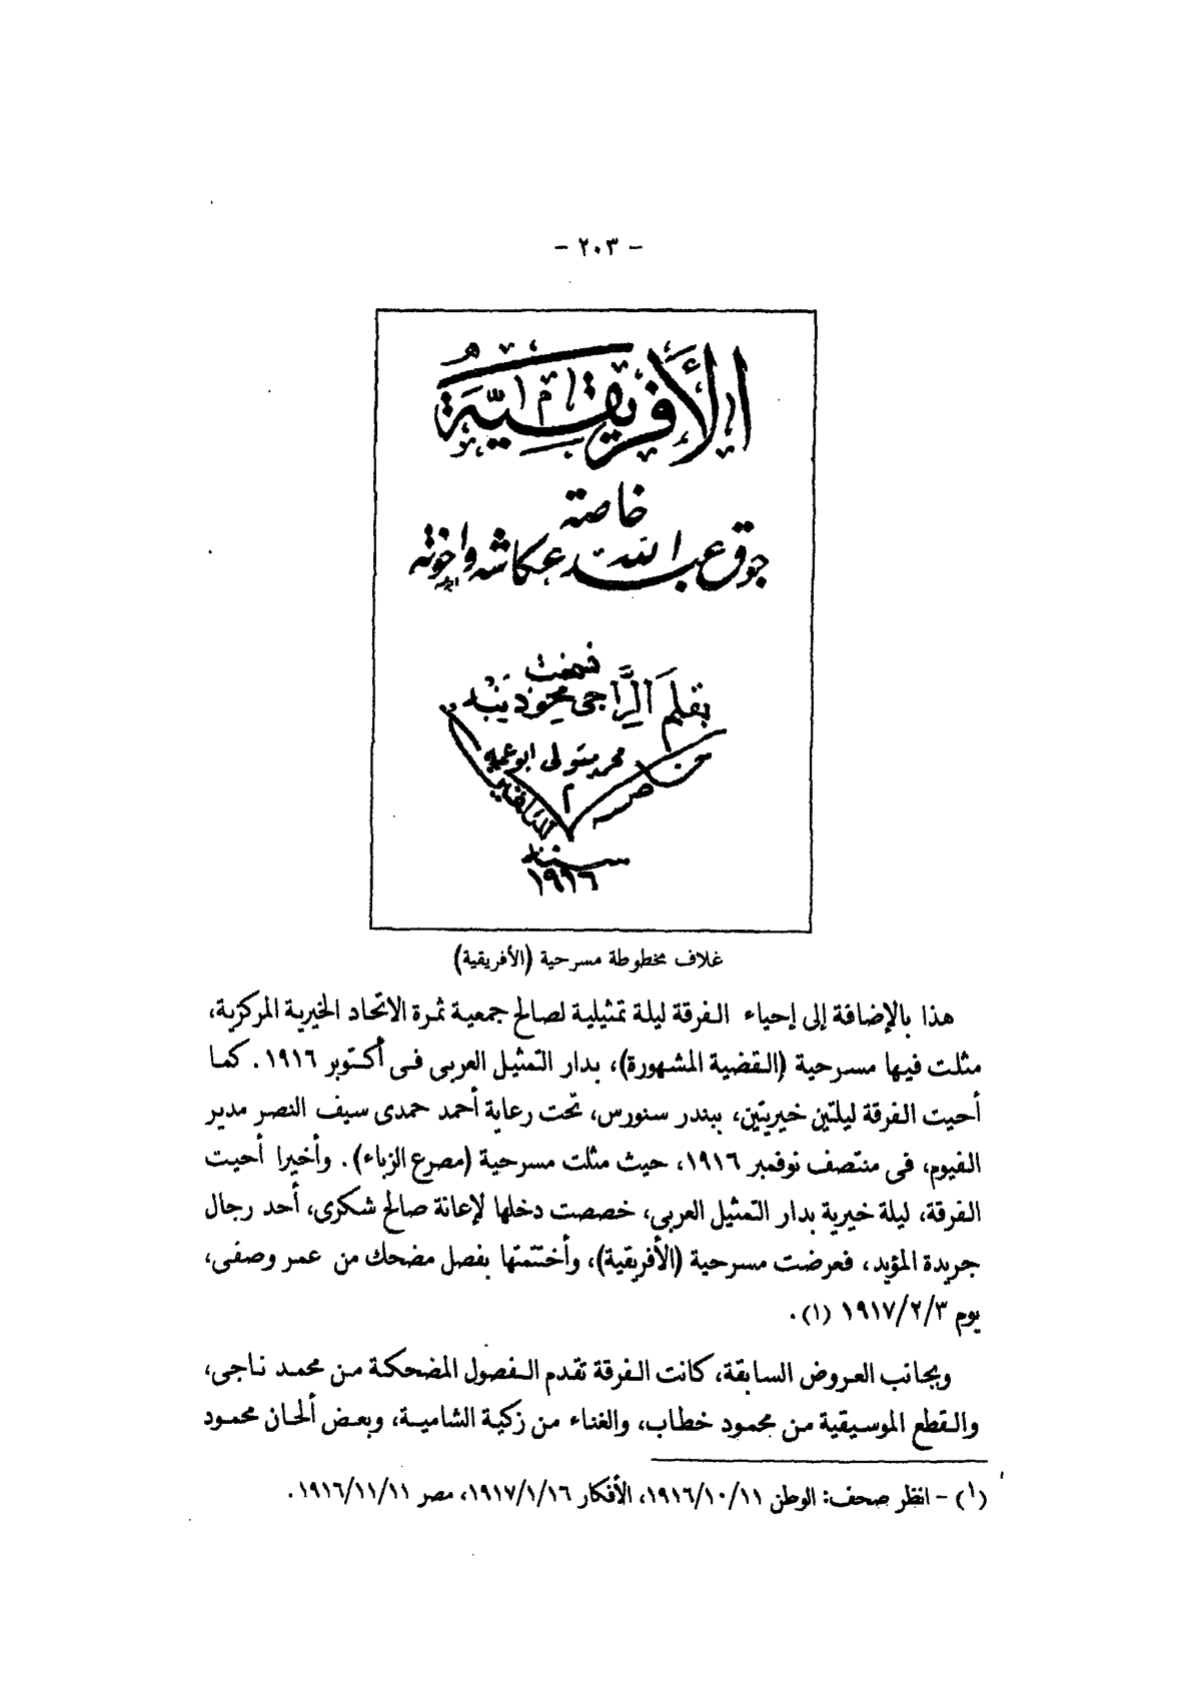 - ٢٠٣ -
الأفريقية
خاصة
جوق عبد الله عكاشه واخوته
بقلم الراجى محمود
محمد متولى ابو
سنة
١٩١٦
غلاف مخطوطة مسرحية (الأفريقية)
هذا بالإضافة إلى إحياء الفرقة ليلة تمثيلية لصالح جمعية ثمرة الاتحاد الخيرية المركزية،
مثلت فيها مسرحية (القضية المشهورة)، بدار التمثيل العربى فى أكتوبر ١٩١٦. كما
أحيت الفرقة ليلتين خيريتين، ببندر سنورس، تحت رعاية أحمد حمدى سيف النصر مدير
الفيوم، فى منتصف نوفمبر ١٩١٦، حيث مثلت مسرحية (مصرع الزباء). وأخيرا أحيت
الفرقة، ليلة خيرية بدار التمثيل العربى، خصصت دخلها لإعانة صالح شكرى، أحد رجال
جريدة المؤيد، فعرضت مسرحية (الأفريقية)، وأختتمتها بفصل مضحك من عمر وصفى،
يوم ١٩١٧/٢/٣ (١).
وبجانب العروض السابقة، كانت الفرقة تقدم الفصول المضحكة من محمد ناجى،
والقطع الموسيقية من محمود خطاب، والغناء من زكية الشامية، وبعض ألحان محمود
(١) - انظر صحف: الوطن ١٩١٦/١٠/١١، الأفكار ١٩١٧/١/١٦، مصر ١٩١٦/١١/١١.